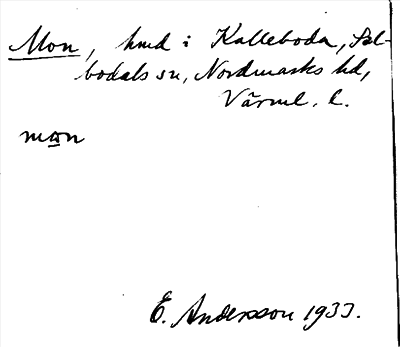 Mon, hmd i Kalleboda, Sil-
bodals sn, Nordmarks hd,
Värml. l.
mɷn
E. Andersson 1933.